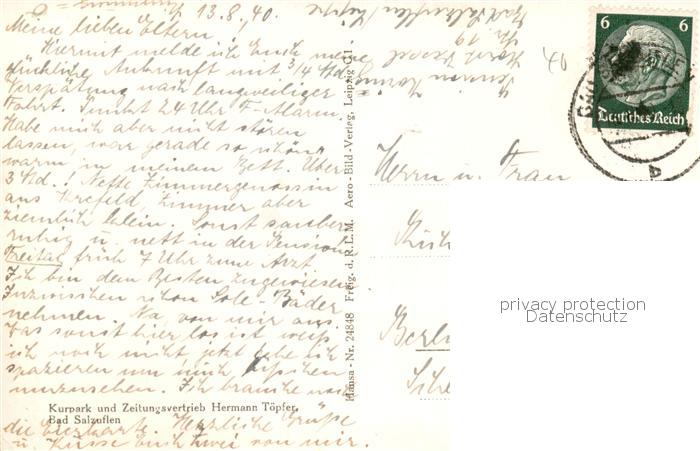 13.8.40.
Meine lieben Eltern!
Hiermit melde ich Euch meine
glückliche Ankunft mit 3/4 Std.
Verspätung nach langweiliger
Fahrt. Punkt 24 Uhr Fl. Alarm.
Habe mich aber nicht stören
lassen, war gerade so schön
warm in meinem Bett. Über
3 Std.! Nette Zimmergenossin
aus Krefeld, Zimmer aber
ziemlich klein. Sonst sauber
ruhig u. nett in der Pension
Freitag früh 7 Uhr zum Arzt
Ich bin dem Besten zugewiesen
Inzwischen schon Sole-Bäder
nehmen. Na von mir aus.
Was sonst hier los ist weiß
ich noch nicht, jetzt gehe ich
spazieren um mich bisschen
umzusehen. Ich brauche noch
Kurpark und Zeitungsvertrieb Hermann Töpfer,
Bad Salzuflen
die Herzliche Grüße
u. Küsse Euch zwei von mir.
Hansa - Nr. 24848 Freig. d. R.L.M. Aero-Bild-Verlag, Leipzig C 1
Bad Salzuflen/Lippe
Nr. 19
40
6 6
Deutsches Reich
b
Herrn u. Frau
Küh
Berl
privacy protection
Datenschutz